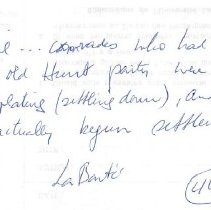 ... comrades who had
old Hunt party were
plating (settling down), an
actually begun settle
La Bontés
(4